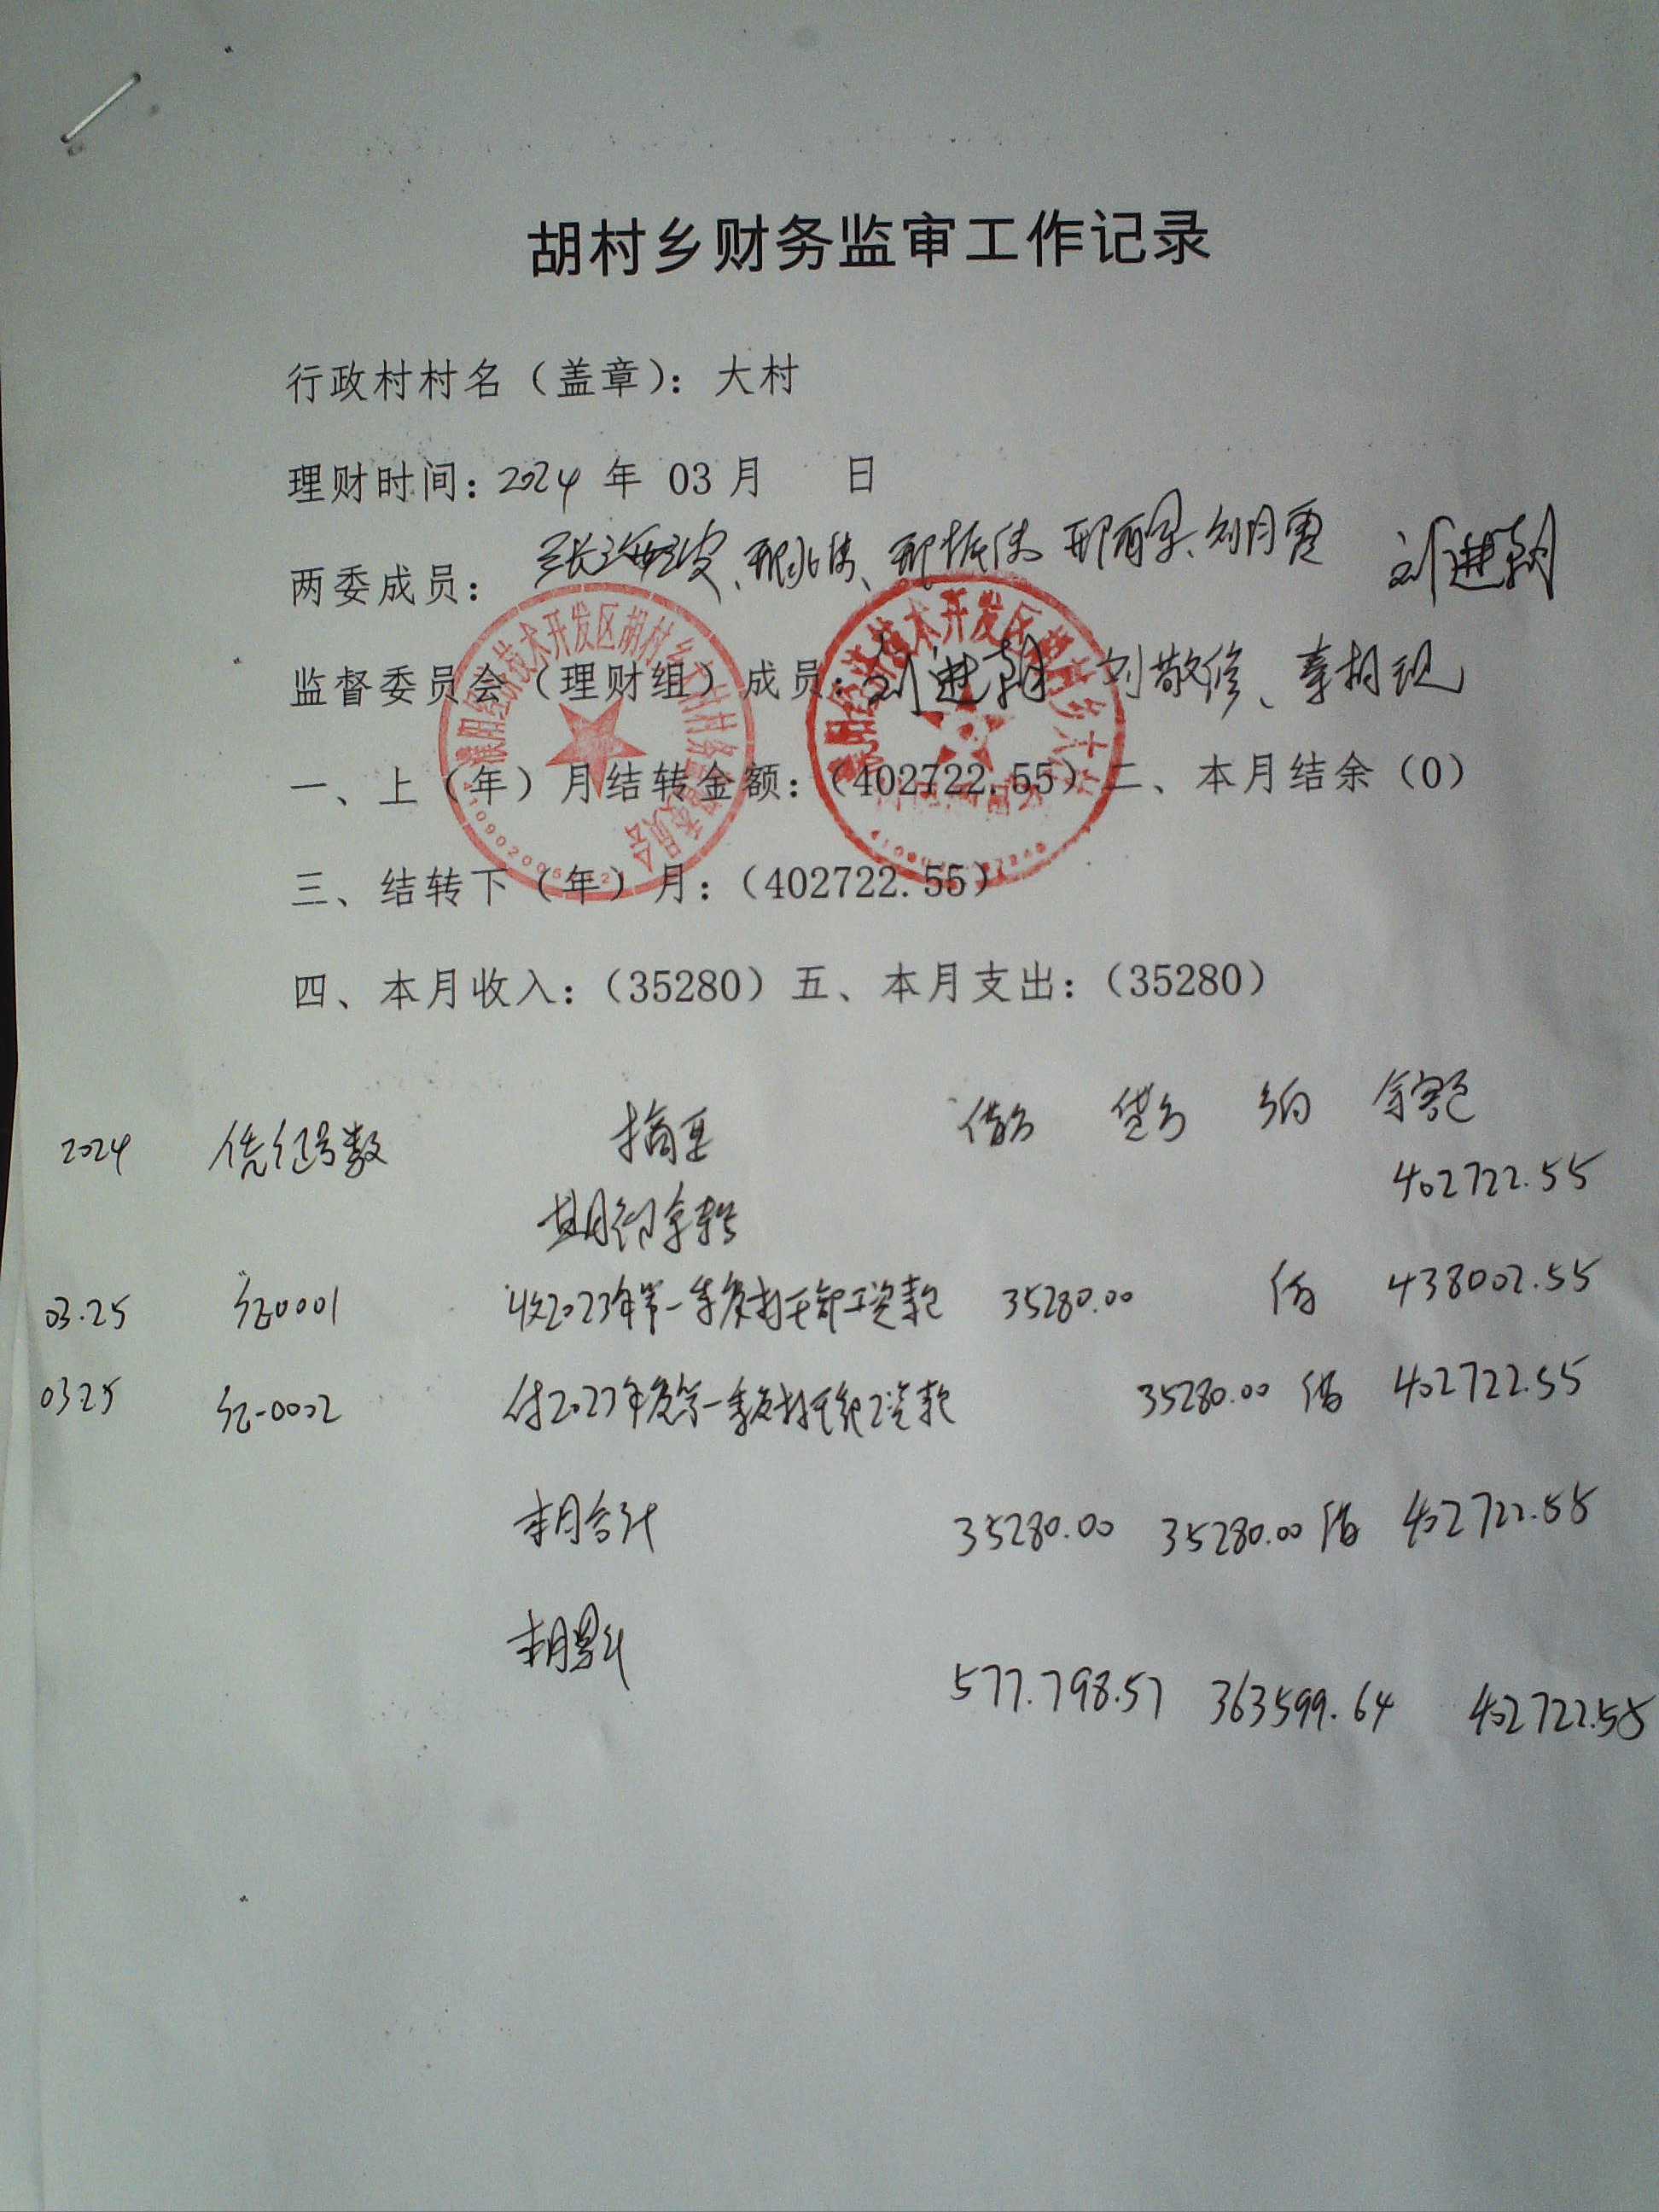 胡村乡财务监审工作记录
行政村村名（盖章）：大村
理财时间：2024 年 03 月 日
两委成员： 刘月霞 刘进朝
监督委员会（理财组）成员：刘进朝 刘敬修、
一、上（年）月结转金额：（402722.55）二、本月结余（0）
三、结转下（年）月：（402722.55）
四、本月收入：（35280）五、本月支出：（35280）
2024 凭证号数 摘要 借方 贷方 方向 余额
期初余额 402722.55
03.25 记0001 收2023年第一季度村干部工资款 35280.00 借 438002.55
03.25 记-0002 付2023年度第一季度村干部工资款 35280.00 借 402722.55
本月合计 35280.00 35280.00 借 402722.55
本月累计 577.798.57 363599.64 402722.55